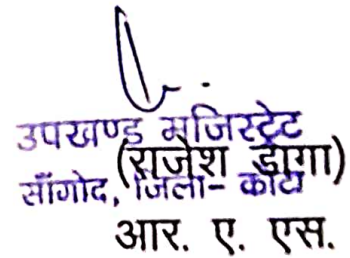 उपखण्ड मजिस्ट्रेट
(राजेश डागा)
सांगोद, जिला- कोटा
आर. ए. एस.